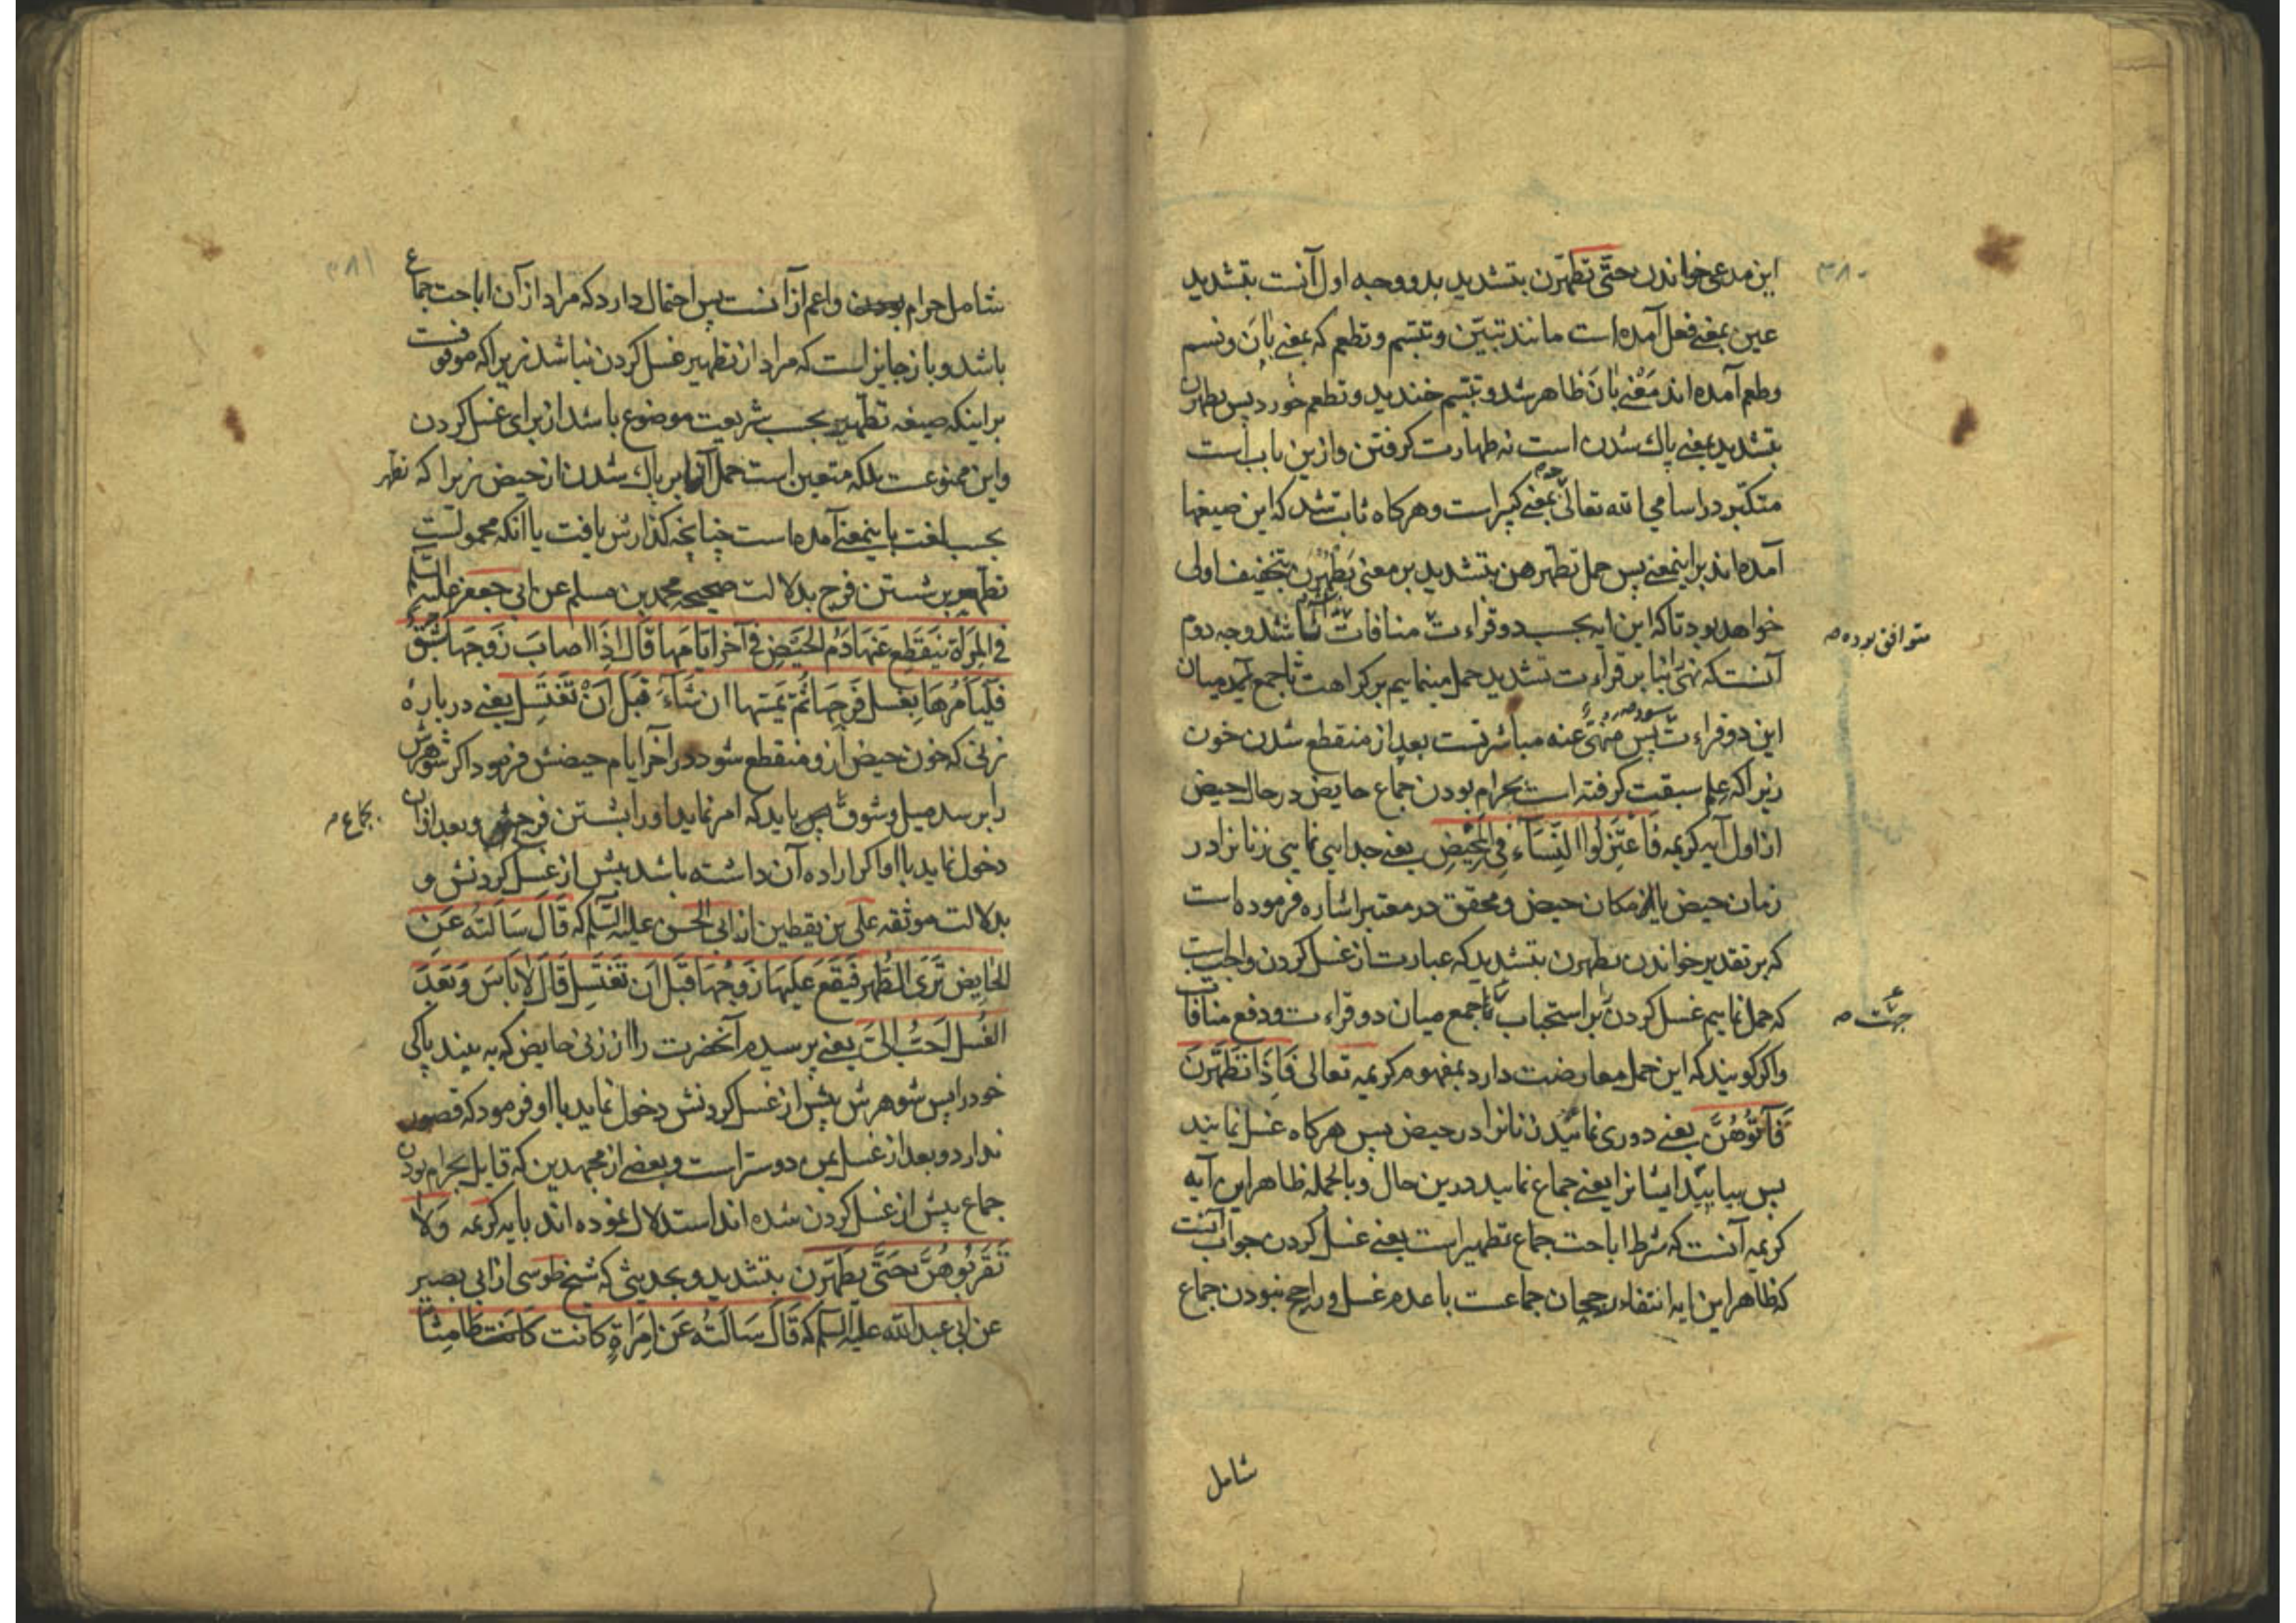 ۳۸۰
این مدعی خواندن حتی تطهرن بتشدید بدو وجه اول آنست بتشدید
عین بمعنی فعل آمده است مانند تبیّن و تبسّم و تطعم که بمعنی بانَ و بسم
و طعم آمده اند مَعْنی بانَ ظاهر شد و تبسّم خندید و تطعم خورد پس یطهرن
بتشدید بمعنی پاک شدن است نه طهارت کرفتن و ازین باب است
متکبّر در اسامی الله تعالی که بمعنی کبیر است و هرکاه ثابت شد که این صیغها
آمده اند براینمعنی پس حمل تطهر هن بتشدید بر معنی یَطْهُرْنَ بتخفیف اولی
خواهد بود تا که این ایه بحسب دو قراءت منافات نداشته باشد وجه دوم
متوافق بوده
آنست که نهی را بنا بر قراءت تشدید حمل مینماییم بر کراهت تا جمع آید میان
این دو قراءت پس منهیّ عنه مباشرتست بعد از منقطع شدن خون
زیرا که علم سبقت کرفته است بحرام بودن جماع حایض در حال حیض
از اول آیه کریمه فَاعْتَزِلُوا النِّسَآءَ فِی الْمَحِیْضِ یعنی جدایی نمایی زنانرا در
زمان حیض یا از مکان حیض و محقق در معتبر اشاره فرموده است
که بر تقدیر خواندن یطهرن بتشدید که عبارت از غسل کردن واجبست
که حمل نماییم غسل کردن را بر استحباب تا جمع میان دو قراءت و دفع منافات
جهت
واکر کویند که این حمل معارضت دارد بمفهوم کریمه تعالی فَاِذَا تَطَهَّرْنَ
فَآتُوهُنَّ یعنی دوری نمائید زنانرا در حیض پس هرکاه غسل نمایند
پس بیایید ایشانرا یعنی جماع نمایید درین حال و بالجمله ظاهر این آیه
کریمه آنست که شرط اباحت جماع تطهیر است یعنی غسل کردن جواب آنست
که ظاهر این ایه انتفاء رجحان جماعست با عدم غسل و راجح نبودن جماع
شامل
۳۸۱
شامل حرام بودن و اعم از آنست پس احتمال دارد که مراد از آن اباحت جماع
باشد و باز جایز است که مراد از تطهیر غسل کردن نباشد زیرا که موقوفست
بر اینکه صیغه تطهیر بحسب شریعت موضوع باشد از برای غسل کردن
و این ممنوعست بلکه متعین است حمل آن بر پاک شدن از حیض زیرا که تطهر
بحسب لغت باینمعنی آمده است چنانچه کذارش یافت یا آنکه محمولست
تطهیر بر شستن فرج بدلالت صحیحه محمد بن مسلم عن ابی جعفر علیه السلم
فی المِرَأة یَنقَطِع عَنهَا دَمُ الحَیَض فِی آخر ایّامهَا قَال اذَا اصابَ زَوجَهَا شَبَقٌ
فَلَیَأمُرهَا بِغَسل فَرجِهَا ثُمّ یَمسّها ان شَآءَ قَبَل اَنْ تَغْتَسِل یعنی درباره
زنی که خون حیض ازو منقطع شود در آخر ایام حیضش فرمود اکر شوهرش
را برسد میل و شوق پس باید که امر نماید او را بشستن فرجش و بعد ازان
بجماع
دخول نماید با او اکر اراده آن داشته باشد پیش از غسل کردنش و
بدلالت موثقه علی بن یقطین از ابی الحسن علیه السلم که قَالَ سَاَلتُه عَنِ
الحَایِض تَرَی الطُهر فَیَقَع عَلَیهَا زَوجُهَا قَبَل اَن تَغتَسِل قَالَ لاٰبَاسَ وَ بَعَدَ
الغُسل اَحَبُّ الیَّ یعنی پرسیدم آنحضرت را از زنی حایض که به بیند پاکی
خود را پس شوهرش پیش از غسل کردنش دخول نماید با او فرمود که قصور
ندارد و بعد از غسل بمن دوستر است و بعضی از مجتهدین که قایل بحرام بودن
جماع پیش از غسل کردن شده اند استدلال نموده اند بایه کریمه وَلاٰ
تَقرَبُوهُنَّ حَتَّی یَطّهّرن بتشدید و بحدیثی که شیخ طوسی از ابی بصیر
عن ابی عبدالله علیه السلم که قَالَ سَاَلتُه عَن اِمرَاةٍ کانت کَانَت طَامِثاً